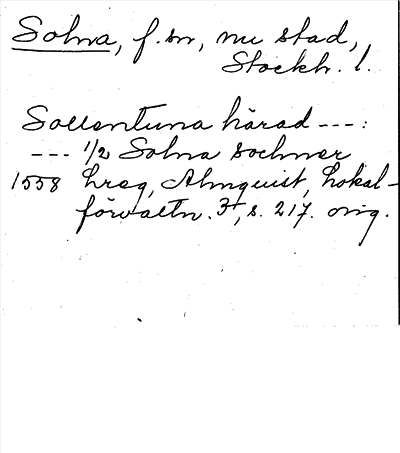 Solna, f. sn, nu stad,
Stockh. l.
Sollentuna härad ---:
--- 1/2 Solna sochner
1558 hreg, Almquist, Lokal-
förvaltn. 3, s. 217. orig.